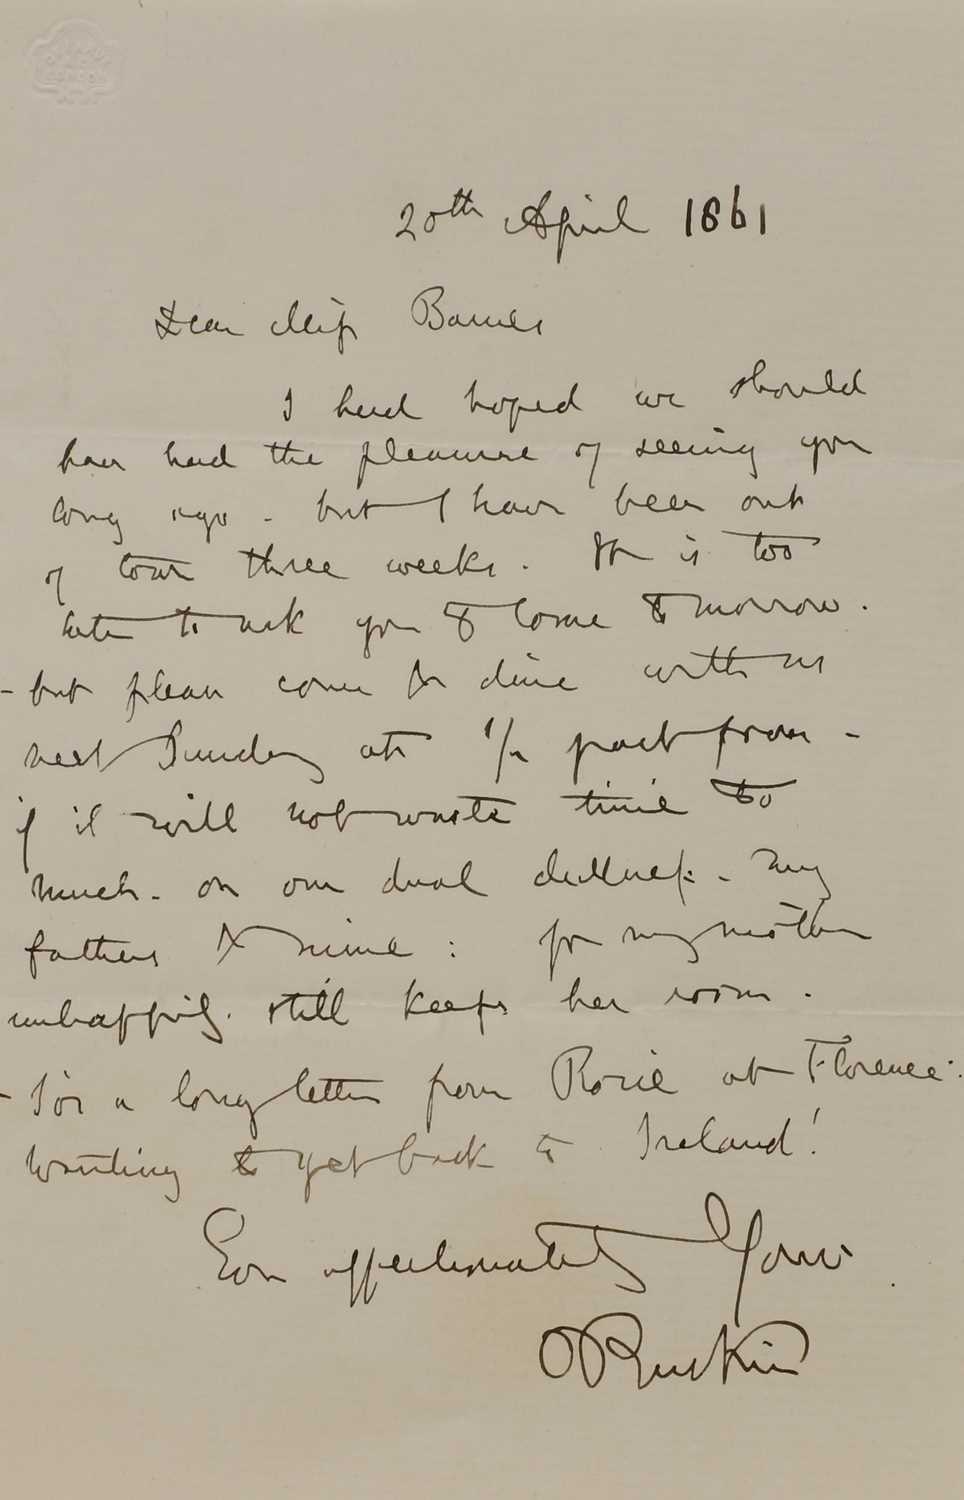 20th April 1861
Dear Miss Barnes
I had hoped we should
have had the pleasure of seeing you
long ago - but I have been out
of town three weeks. It is too
late to ask you to come tomorrow.
- but please come & dine with us
next Sunday at 1/2 past four -
if it will not waste time too
much - on our dual dullness - my
fathers & mine : for my mother
unhappily still keeps her room .
- I've a long letter from Rosie at Florence -
wanting to get back to Ireland!
Ever affectionately Yours
J Ruskin